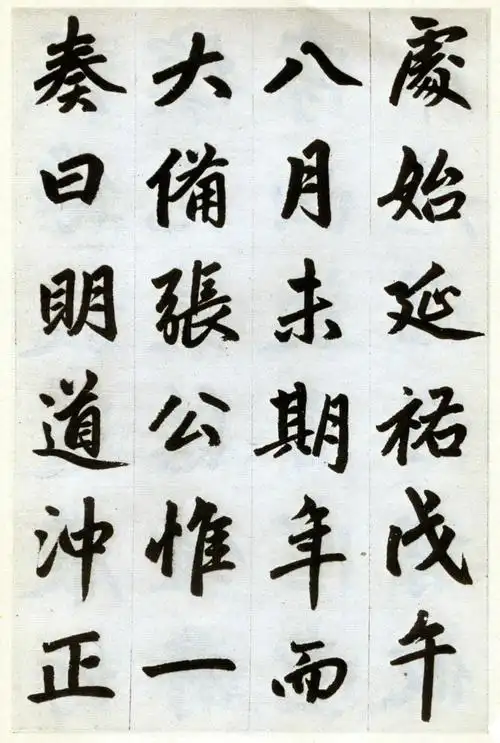 處始延祐戊午
八月未期年而
大備張公惟一
奏曰明道沖正